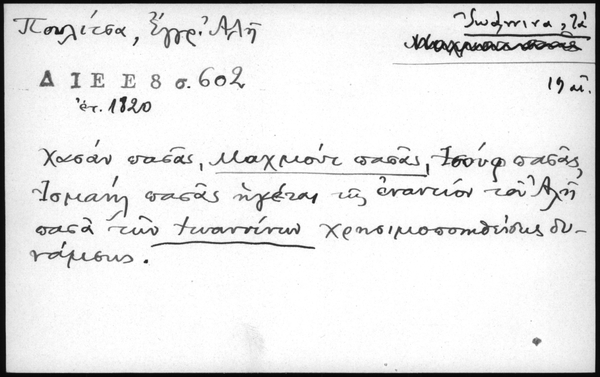 Πουλίτσα, Ἔγγρ. Ἀλῆ
Ἰωάννινα, τά
Δ Ι Ε Ε 8 σ. 602
ἐτ. 1820
19 αἰ.
Χασάν πασᾶς, Μαχμούτ πασᾶς, Ἰσούφ πασᾶς,
Ἰσμαήλ πασᾶς ἡγέται τῆς ἐναντίον τοῦ Ἀλῆ
πασᾶ τῶν Ἰωαννίνων χρησιμοποιηθείσης δυ-
νάμεως.